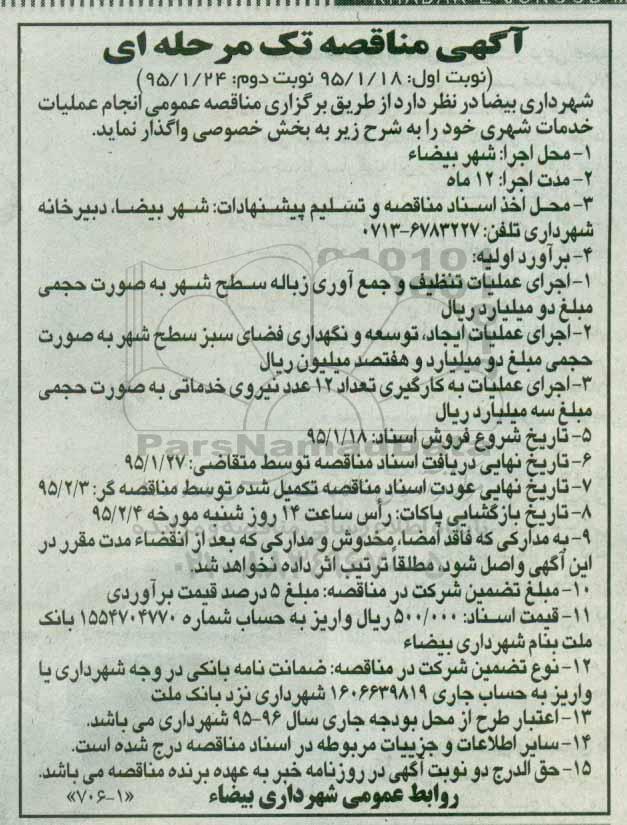 آگهی مناقصه تک مرحله ای
(نوبت اول: ۹۵/۱/۱۸ نوبت دوم: ۹۵/۱/۲۴)
شهرداری بیضا در نظر دارد از طریق برگزاری مناقصه عمومی انجام عملیات
خدمات شهری خود را به شرح زیر به بخش خصوصی واگذار نماید.
۱- محل اجرا: شهر بیضاء
۲- مدت اجرا: ۱۲ ماه
۳- محل اخذ اسناد مناقصه و تسلیم پیشنهادات: شهر بیضا، دبیرخانه
شهرداری تلفن: ۶۷۸۳۲۲۷-۰۷۱۳
۴- برآورد اولیه:
۱- اجرای عملیات تنظیف و جمع آوری زباله سطح شهر به صورت حجمی
مبلغ دو میلیارد ریال
۲- اجرای عملیات ایجاد، توسعه و نگهداری فضای سبز سطح شهر به صورت
حجمی مبلغ دو میلیارد و هفتصد میلیون ریال
۳- اجرای عملیات به کارگیری تعداد ۱۲ عدد نیروی خدماتی به صورت حجمی
مبلغ سه میلیارد ریال
ParsNamad
۵- تاریخ شروع فروش اسناد: ۹۵/۱/۱۸
۶- تاریخ نهایی دریافت اسناد مناقصه توسط متقاضی: ۹۵/۱/۲۷
۷- تاریخ نهایی عودت اسناد مناقصه تکمیل شده توسط مناقصه گر: ۹۵/۲/۳
۸- تاریخ بازگشایی پاکات: رأس ساعت ۱۴ روز شنبه مورخه ۹۵/۲/۴
۹- به مدارکی که فاقد امضا، مخدوش و مدارکی که بعد از انقضاء مدت مقرر در
این آگهی واصل شود، مطلقاً ترتیب اثر داده نخواهد شد.
۱۰- مبلغ تضمین شرکت در مناقصه: مبلغ ۵ درصد قیمت برآوردی
۱۱- قیمت اسناد: ۵۰۰/۰۰۰ ریال واریز به حساب شماره ۱۵۵۴۷۰۴۷۷۰ بانک
ملت بنام شهرداری بیضاء
۱۲- نوع تضمین شرکت در مناقصه: ضمانت نامه بانکی در وجه شهرداری یا
واریز به حساب جاری ۱۶۰۶۶۳۹۸۱۹ شهرداری نزد بانک ملت
۱۳- اعتبار طرح از محل بودجه جاری سال ۹۶-۹۵ شهرداری می باشد.
۱۴- سایر اطلاعات و جزییات مربوطه در اسناد مناقصه درج شده است.
۱۵- حق الدرج دو نوبت آگهی در روزنامه خبر به عهده برنده مناقصه می باشد.
روابط عمومی شهرداری بیضاء «۷۰۶-۱»